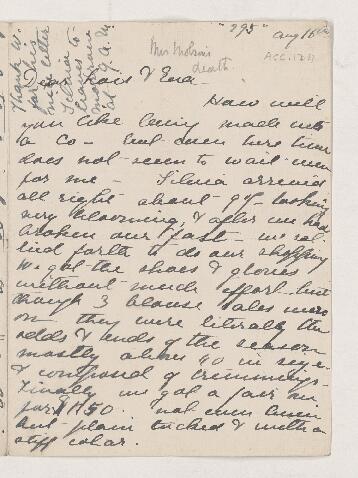 "295" Aug 16th
Mrs Molson's
death.
ACC.
Thank W.
for his
letter
Silvia to
Dear Lois & Ena -
How will
you like being made into
a Co - but even here time
does not seem to wait even
for me - Silvia arrived
all right about 9.45 looking
very blooming, & after we had
broken our fast - we sal-
lied forth to do our shopping
We got the shoes & gloves
without much effort - but
though 3 blouse sales were
on - they were literally the
odds & ends of the season
mostly above 40 in size
& composed of trimmings -
Finally we got a fair one
for $1.50. not even linen
but plain tucked & with a
stiff collar.